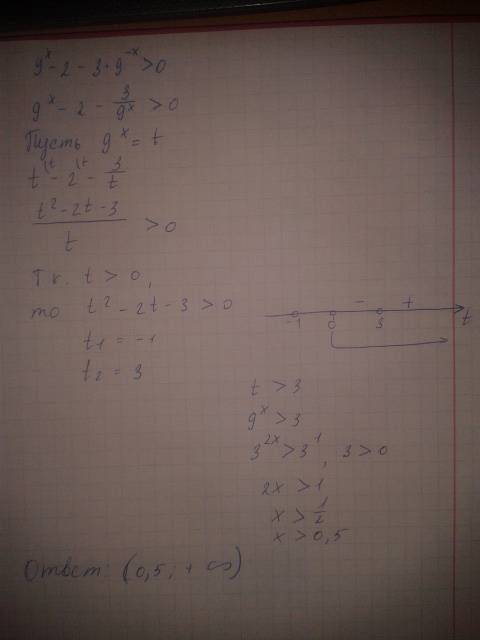 9^x - 2 - 3 * 9^-x > 0
9^x - 2 - 3/9^x > 0
Пусть 9^x = t
t^(t - 2^(t - 3/t
(t² - 2t - 3)/t > 0
Т к. t > 0,
то t² - 2t - 3 > 0
t₁ = -1
t₂ = 3
- +
-1 0 3 t
t > 3
9^x > 3
3^2x > 3^1, 3 > 0
2x > 1
x > 1/2
x > 0,5
Ответ: (0,5; + ∞)